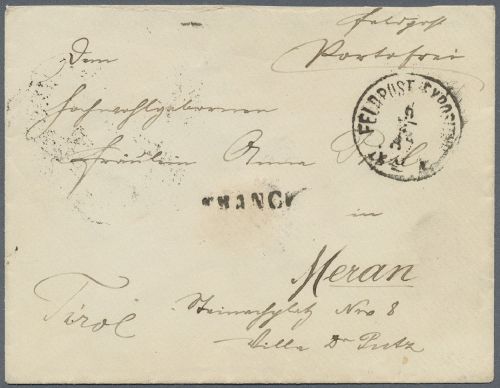 Feldpost
Portofrei
Dem
hochwohlgebornen
Fräulein Anna
FELDPOST EXPOSITUR
FRANCO
in
Meran
Tirol
Steinachplatz Nro 8
Villa Dr Putz